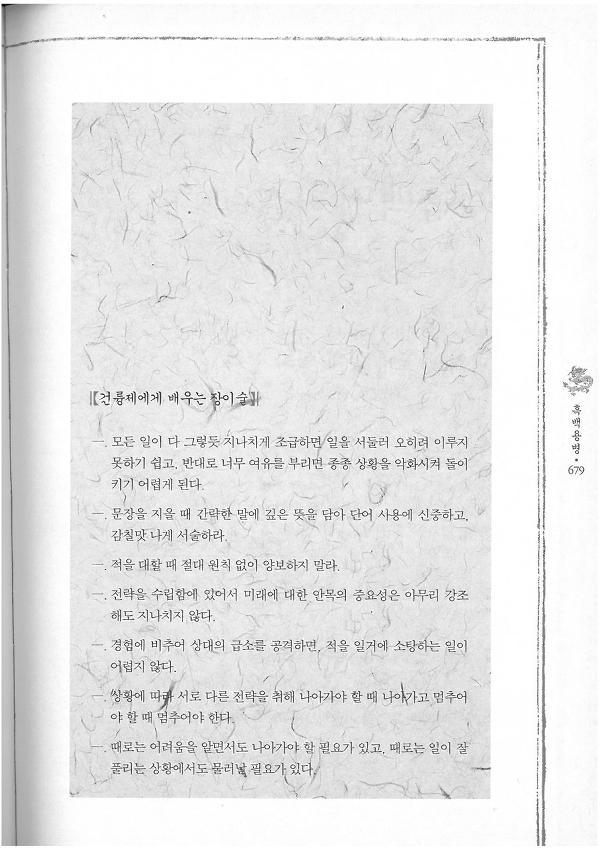 【건륭제에게 배우는 장이술】
一. 모든 일이 다 그렇듯 지나치게 조급하면 일을 서둘러 오히려 이루지
못하기 쉽고, 반대로 너무 여유를 부리면 종종 상황을 악화시켜 돌이
키기 어렵게 된다.
一. 문장을 지을 때 간략한 말에 깊은 뜻을 담아 단어 사용에 신중하고,
감칠맛 나게 서술하라.
一. 적을 대할 때 절대 원칙 없이 양보하지 말라.
一. 전략을 수립함에 있어서 미래에 대한 안목의 중요성은 아무리 강조
해도 지나치지 않다.
一. 경험에 비추어 상대의 급소를 공격하면, 적을 일거에 소탕하는 일이
어렵지 않다.
一. 상황에 따라 서로 다른 전략을 취해 나아가야 할 때 나아가고 멈추어
야 할 때 멈추어야 한다.
一. 때로는 어려움을 알면서도 나아가야 할 필요가 있고, 때로는 일이 잘
풀리는 상황에서도 물러날 필요가 있다.
흑백용병 • 679